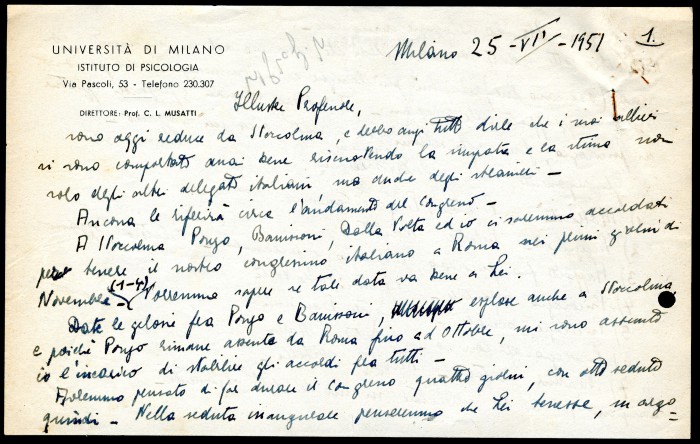 UNIVERSITÀ DI MILANO
ISTITUTO DI PSICOLOGIA
Via Pascoli, 53 - Telefono 230.307
DIRETTORE: Prof. C. L. MUSATTI
Milano 25-VII-1951
1.
Illustre Professore,
sono oggi reduce da Stoccolma, e debbo anzi tutto dirle che i suoi allievi
si sono comportati assai bene riscuotendo la simpatia e la stima non
solo degli altri delegati italiani ma anche degli stranieri -
Ancona le riferirà circa l'andamento del congresso -
A Stoccolma Ponzo, Banissoni, Dalla Volta ed io ci saremmo accordati
per tenere il nostro congressino italiano a Roma nei primi giorni di
Novembre - (1-4) Vorremmo sapere se tale data va bene a Lei.
Date le gelosie fra Ponzo e Banissoni, esplose anche a Stoccolma,
e poiché Ponzo rimane assente da Roma fino ad ottobre, mi sono assunto
io l'incarico di stabilire gli accordi fra tutti -
Avremmo pensato di far durare il congresso quattro giorni, con otto sedute
quindi - Nella seduta inaugurale penseremmo che Lei tenesse, in argo=